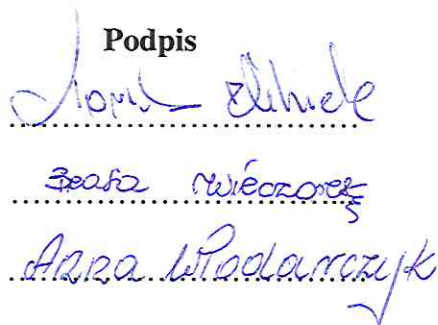 Podpis
Beata Wieczorek
Anna Włodarczyk